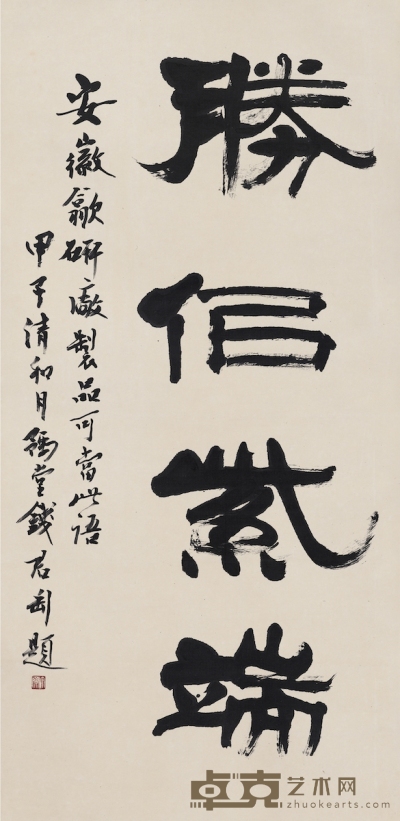 勝佀紫端
安徽歙研廠製品可當此語
甲子清和月豫堂錢君匋題
卓克艺术网
zhuokearts.com